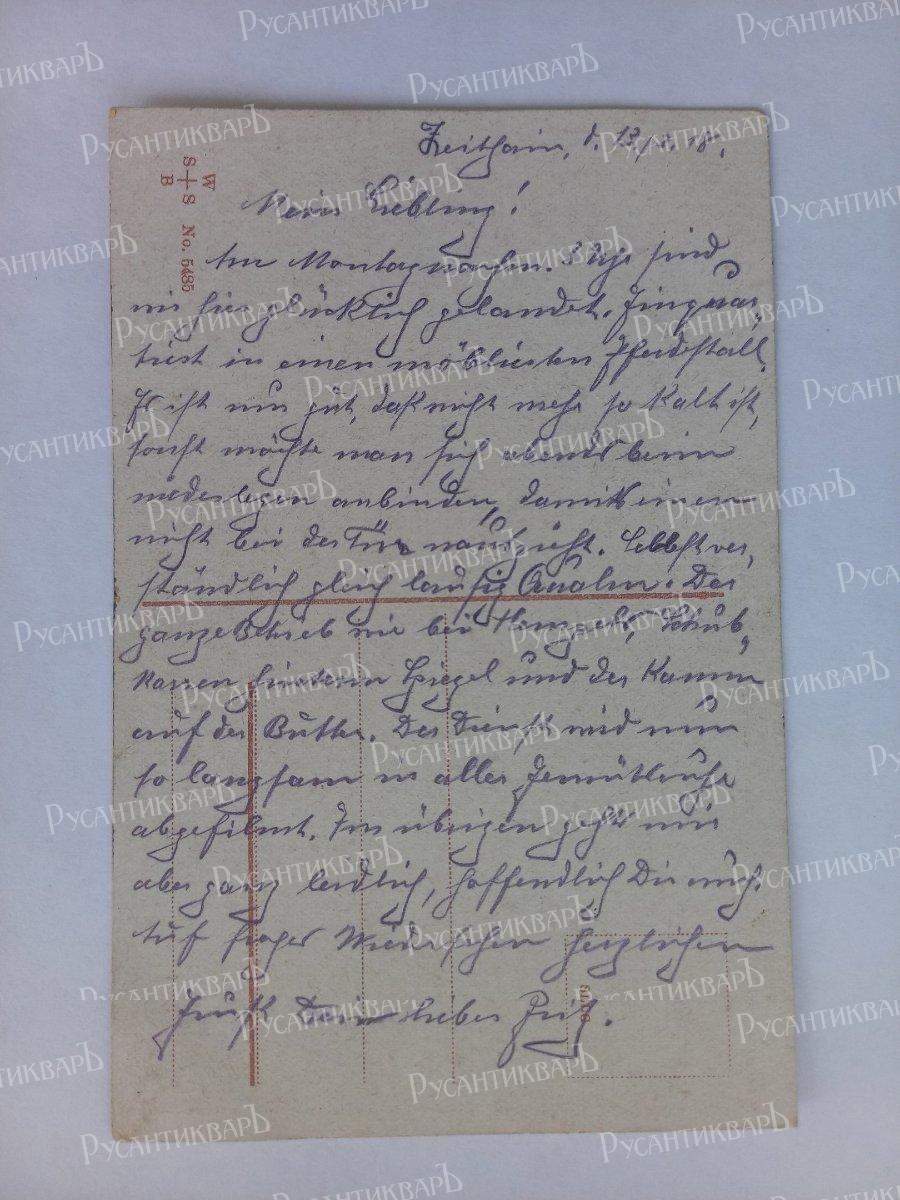 Zeithain, d. 13. 18.
Mein Liebling!
Am Montagnachm. Uhr sind
wir hier glücklich gelandet. Einquar-
tiert in einen möblierten Pferdestall.
Es ist nur gut, daß nicht mehr so kalt ist,
sonst möchte man sich abends beim
niederlegen anbinden, damits einem
nicht bei der Tür nauszieht. Selbstver-
ständlich gleich lausig Qualm. Der
ganze Betrieb wie bei Schub-
karren hinterm Spiegel und der Kamm
auf der Butter. Der Dienst wird nun
so langsam in aller Gemütsruhe
abgefilmt. Im übrigen gehts mir
aber ganz leidlich, hoffendlich Dir auch.
Auf froher Wiedersehen herzlichen
Gruß Dein lieber
W
S+S
B
No. 5485
РусантикварЪ